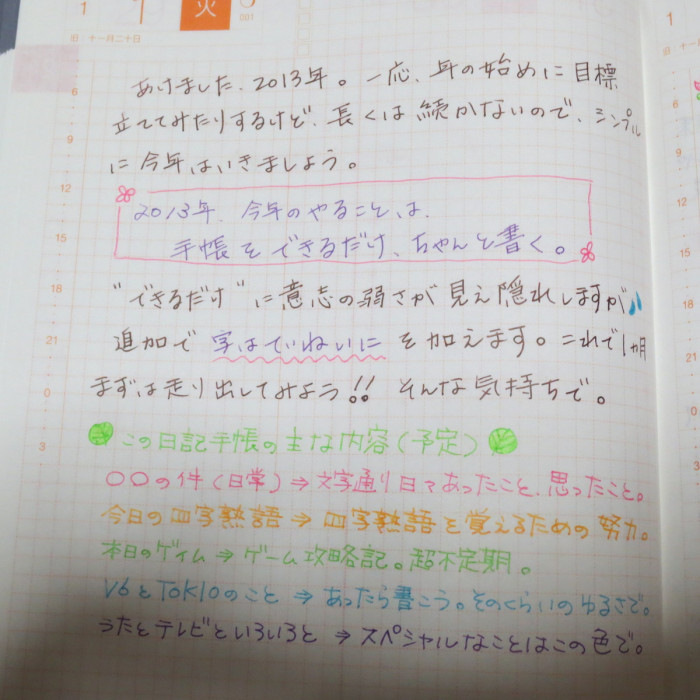 1 1 火
旧 十一月二十日
001
あけました、2013年。一応、年の始めに目標
立ててみたりするけど、長くは続かないので、シンプル
に今年はいきましょう。
2013年、今年のやることは、
手帳をできるだけ、ちゃんと書く。
"できるだけ"に意志の弱さが見え隠れしますが
追加で字はていねいにを加えます。これで1ヵ月
まずは走り出してみよう!! そんな気持ちで。
この日記手帳の主な内容(予定)
〇〇の件(日常)⇒文字通り日々あったこと、思ったこと。
今日の四字熟語⇒四字熟語を覚えるための努力。
本日のゲイム⇒ゲーム攻略記。超不定期。
V6とTOKIOのこと⇒あったら書こう。そのくらいのゆるさで。
うたとテレビといろいろと⇒スペシャルなことはこの色で。
6
9
12
15
18
21
0
3
1
旧 十一月
6
9
12
15
18
21
0
3